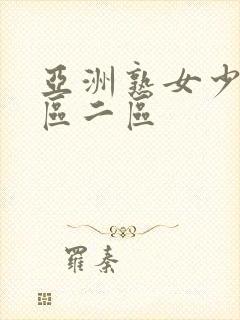 亞洲熟女少
區二區
羅秦